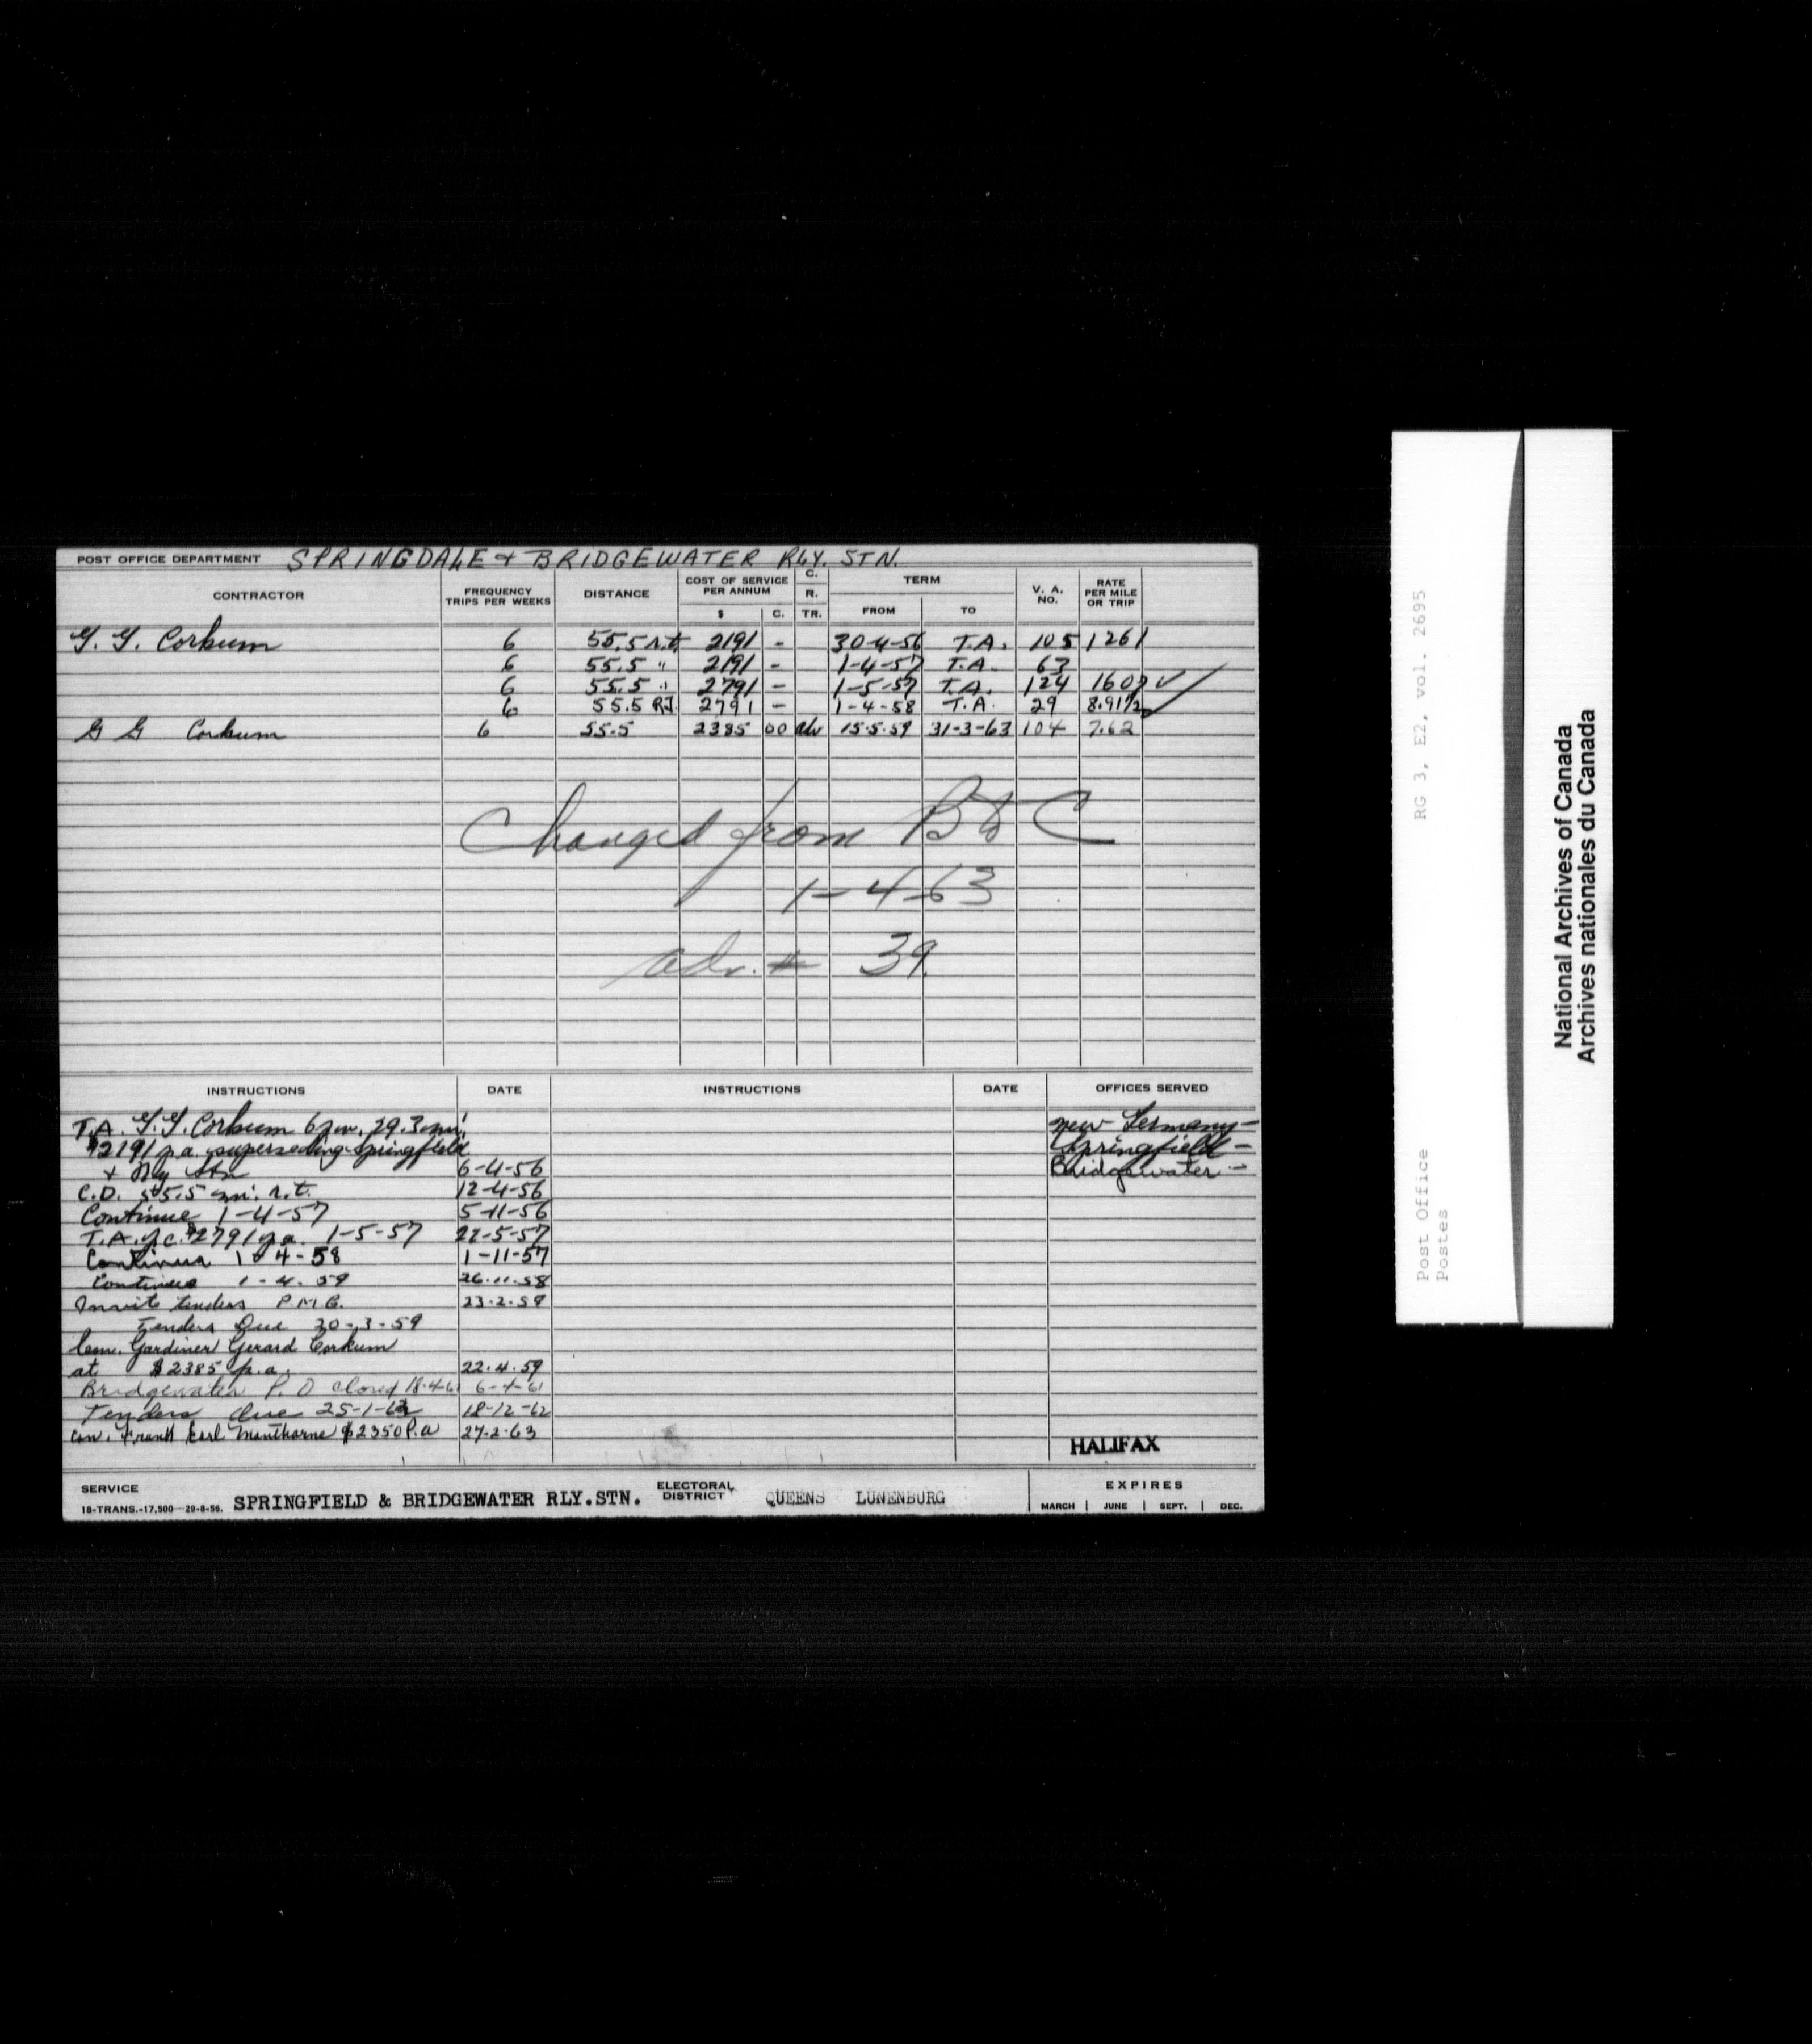 POST OFFICE DEPARTMENT SPRINGDALE & BRIDGEWATER RLY. STN.
CONTRACTOR FREQUENCY TRIPS PER WEEKS DISTANCE COST OF SERVICE PER ANNUM $ C. C. R. TR. TERM FROM TO V. A. NO. RATE PER MILE OR TRIP
G. G. Corkum 6 55.5 r.t. 2191 - 30-4-56 T.A. 105 1261
6 55.5 " 2191 - 1-4-57 T.A. 63
6 55.5 " 2791 - 1-5-57 T.A. 124 1607 ✓
6 55.5 R.T. 2791 - 1-4-58 T.A. 29 8.91½ ✓
G G Corkum 6 55.5 2385 00 15.5.59 31-3-63 104 7.62
Changed from B & C
1-4-63
adv. # 39.
INSTRUCTIONS DATE INSTRUCTIONS DATE OFFICES SERVED
T.A. G.G. Corkum 6 p.w. 29.3 mi. New Germany -
$2191 p.a. superseding Springfield Springfield -
& Rly Stn 6-4-56 Bridgewater -
C.D. 55.5 mi. r.t. 12-4-56
Continue 1-4-57 5-11-56
T.A. $2791 p.a. 1-5-57 22-5-57
Continue 1-4-58 1-11-57
Continue 1-4.59 26.11.58
Invite tenders P.M.G. 23.2.59
Tenders Due 30-3-59
Con. Gardiner Gerard Corkum
at $2385 p.a. 22.4.59
Bridgewater P.O closed 18-4-61 6-4-61
Tenders due 25-1-63 18-12-62
Con. Frank Earl Manthorne $2350 P.a 27.2.63
HALIFAX
SERVICE 18-TRANS.-17,500-29-8-56. SPRINGFIELD & BRIDGEWATER RLY.STN. ELECTORAL DISTRICT QUEENS LUNENBURG EXPIRES MARCH | JUNE | SEPT. | DEC.
RG 3, E2, vol. 2695
Post Office
Postes
National Archives of Canada
Archives nationales du Canada